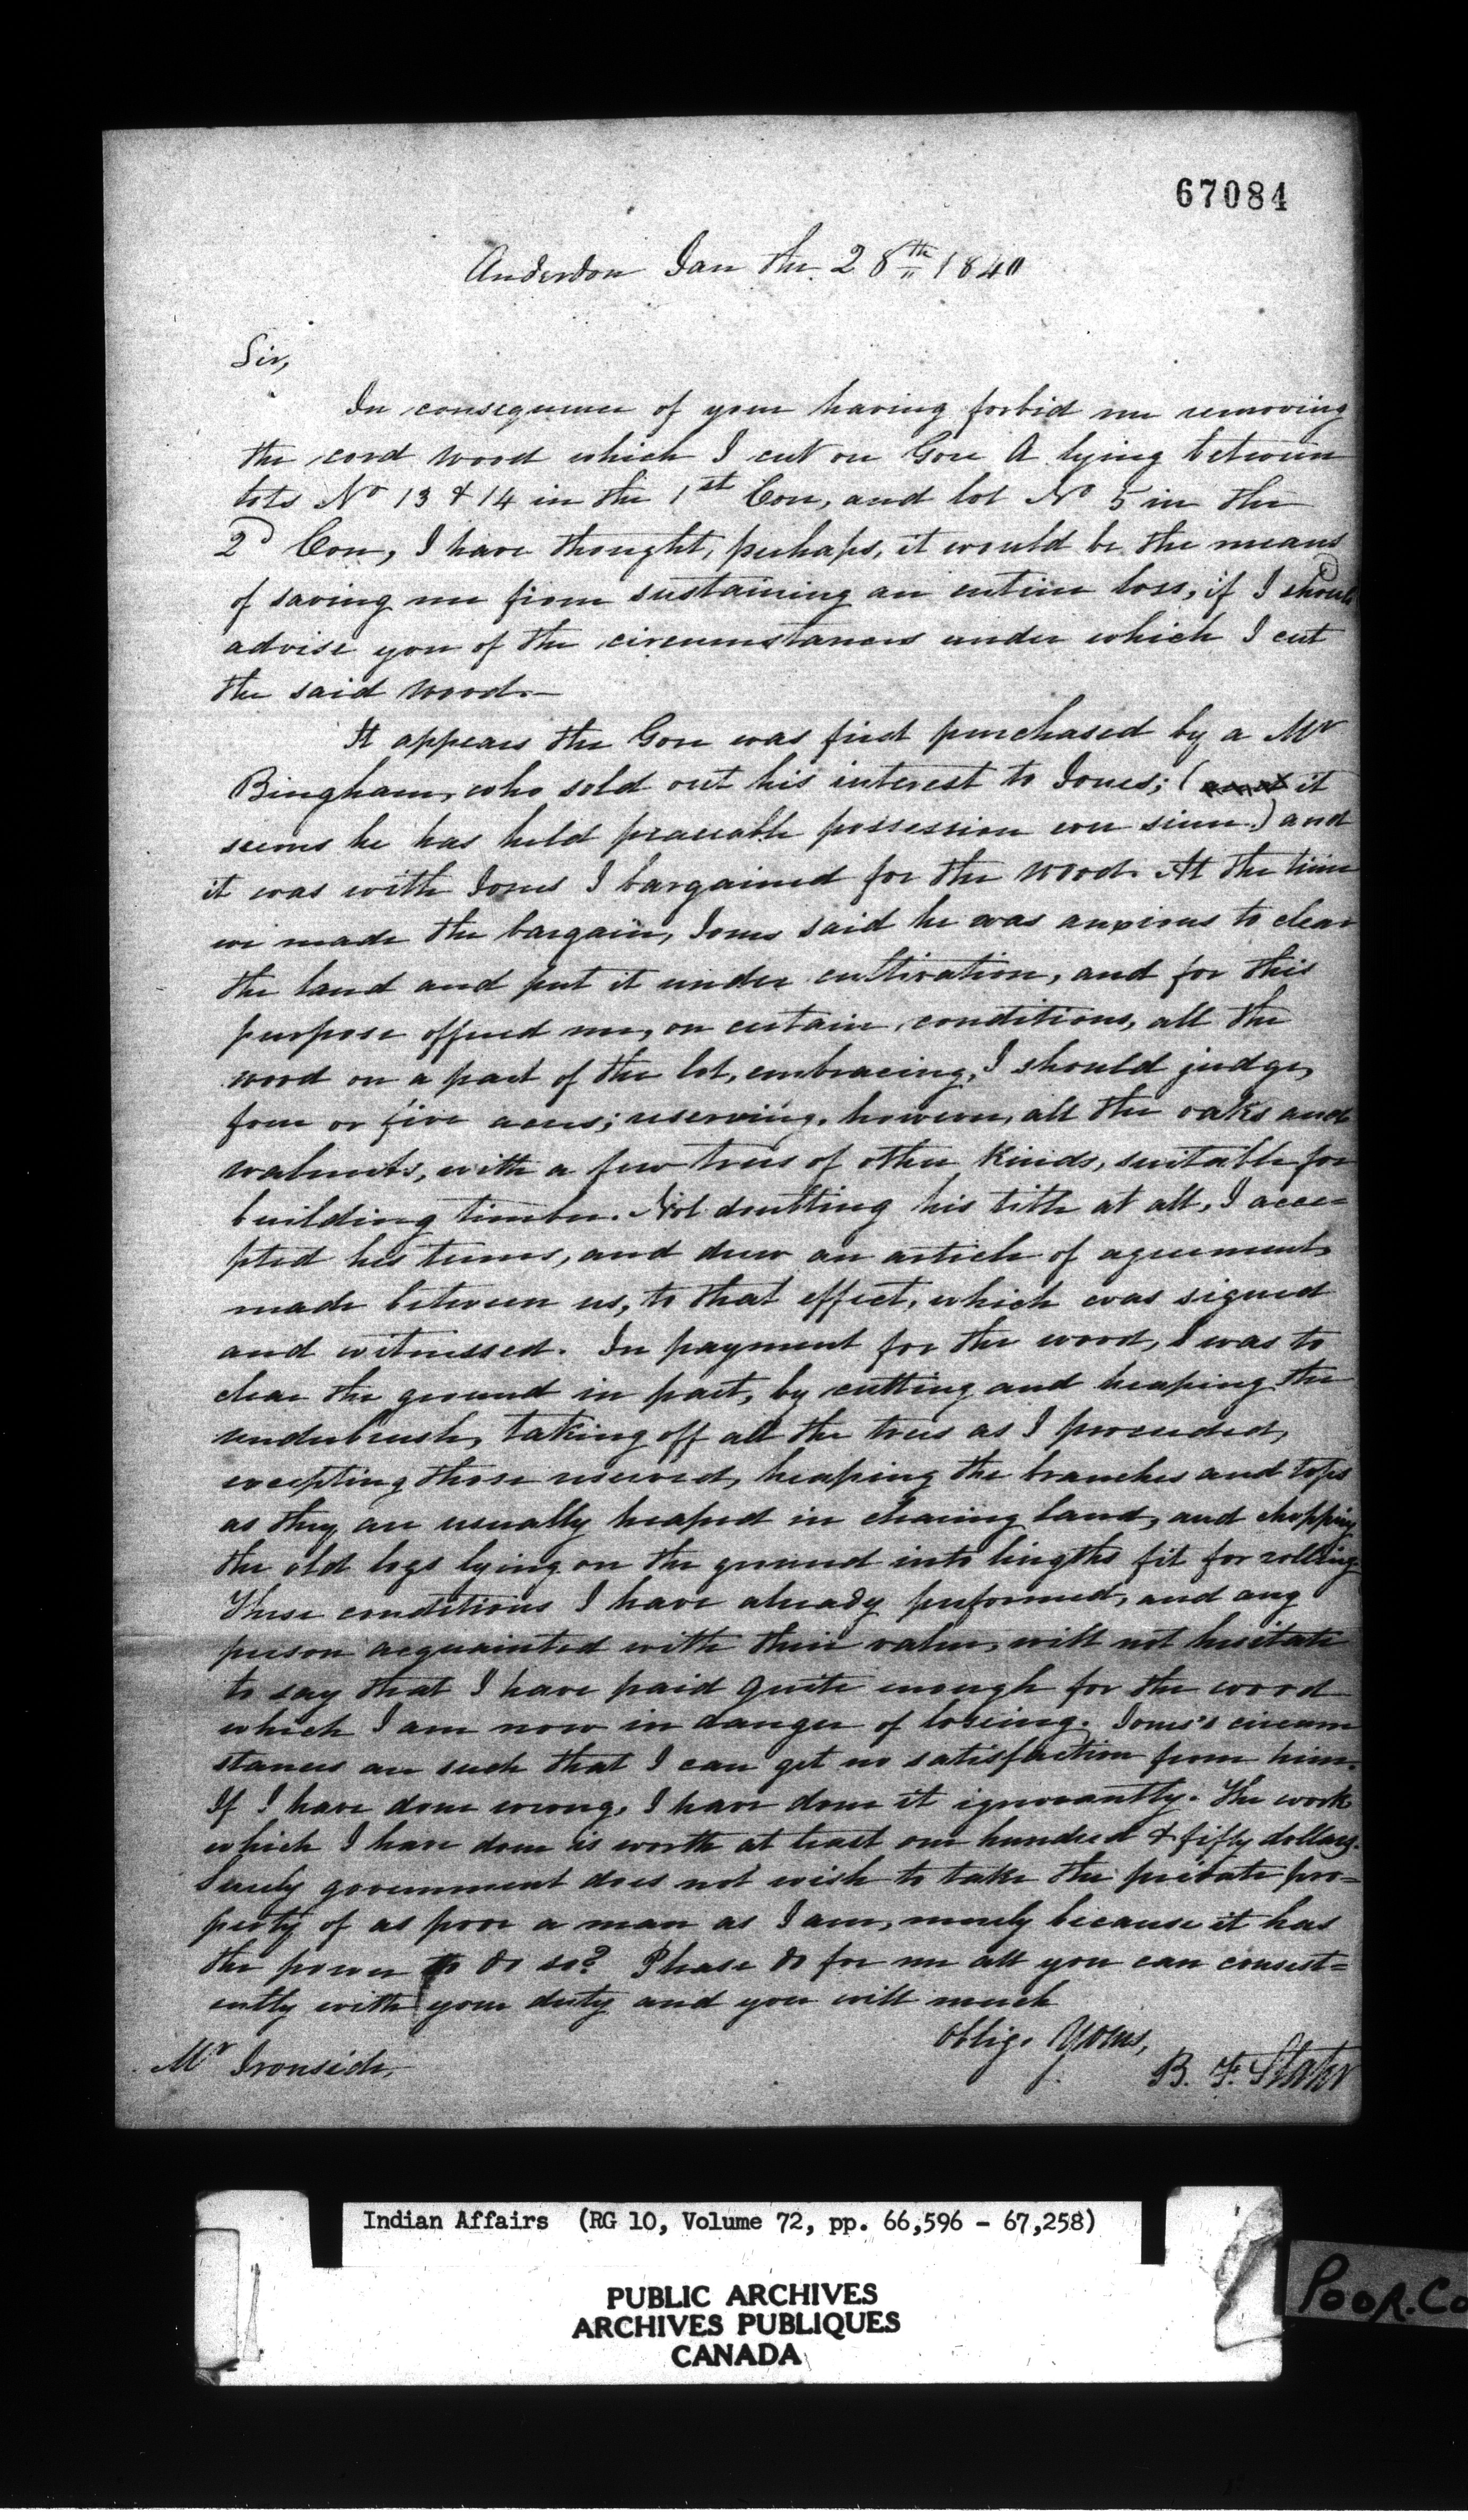 67084
Anderdon Jan the 28th 1840
Sir,
In consequence of your having forbid me removing
the cord wood which I cut on Gore A lying between
lots No 13 & 14 in the 1st Con, and lot No 5 in the
2d Con, I have thought, perhaps, it would be the means
of saving me from sustaining an entire loss, if I should
advise you of the circumstances under which I cut
the said wood.—
It appears the Gore was first purchased by a Mr
Bingham, who sold out his interest to Jones; ( it
seems he has held peaceable possession ever since.) and
it was with Jones I bargained for the wood. At the time
we made the bargain, Jones said he was anxious to clear
the land and put it under cultivation, and for this
purpose offered me, on certain conditions, all the
wood on a part of the lot, embracing, I should judge,
four or five acres; reserving, however, all the oaks and
walnuts, with a few trees of other kinds, suitable for
building timber. Not doubting his title at all, I acce=
pted his terms, and drew an article of agreement,
made between us, to that effect, which was signed
and witnessed. In payment for the wood, I was to
clear the ground in part, by cutting and heaping the
underbrush, taking off all the trees as I proceeded,
excepting those reserved, heaping the branches and tops
as they are usually heaped in clearing land, and chopping
the old logs lying on the ground into lengths fit for rolling.
These conditions I have already performed, and any
person acquainted with their value, will not hesitate
to say that I have paid quite enough for the wood
which I am now in danger of loseing. Jones's circum
stances are such that I can get no satisfaction from him.
If I have done wrong, I have done it ignorantly. The work
which I have done is worth at least one hundred & fifty dollars.
Surely government does not wish to take the private pro=
perty of as poor a man as I am, merely because it has
the power to do so? Please do for me all you can consist=
ently with your duty and you will much
oblige Yours,
Mr Ironside,
B. F.
Indian Affairs (RG 10, Volume 72, pp. 66,596 - 67,258)
PUBLIC ARCHIVES
ARCHIVES PUBLIQUES
CANADA
POOR.CO